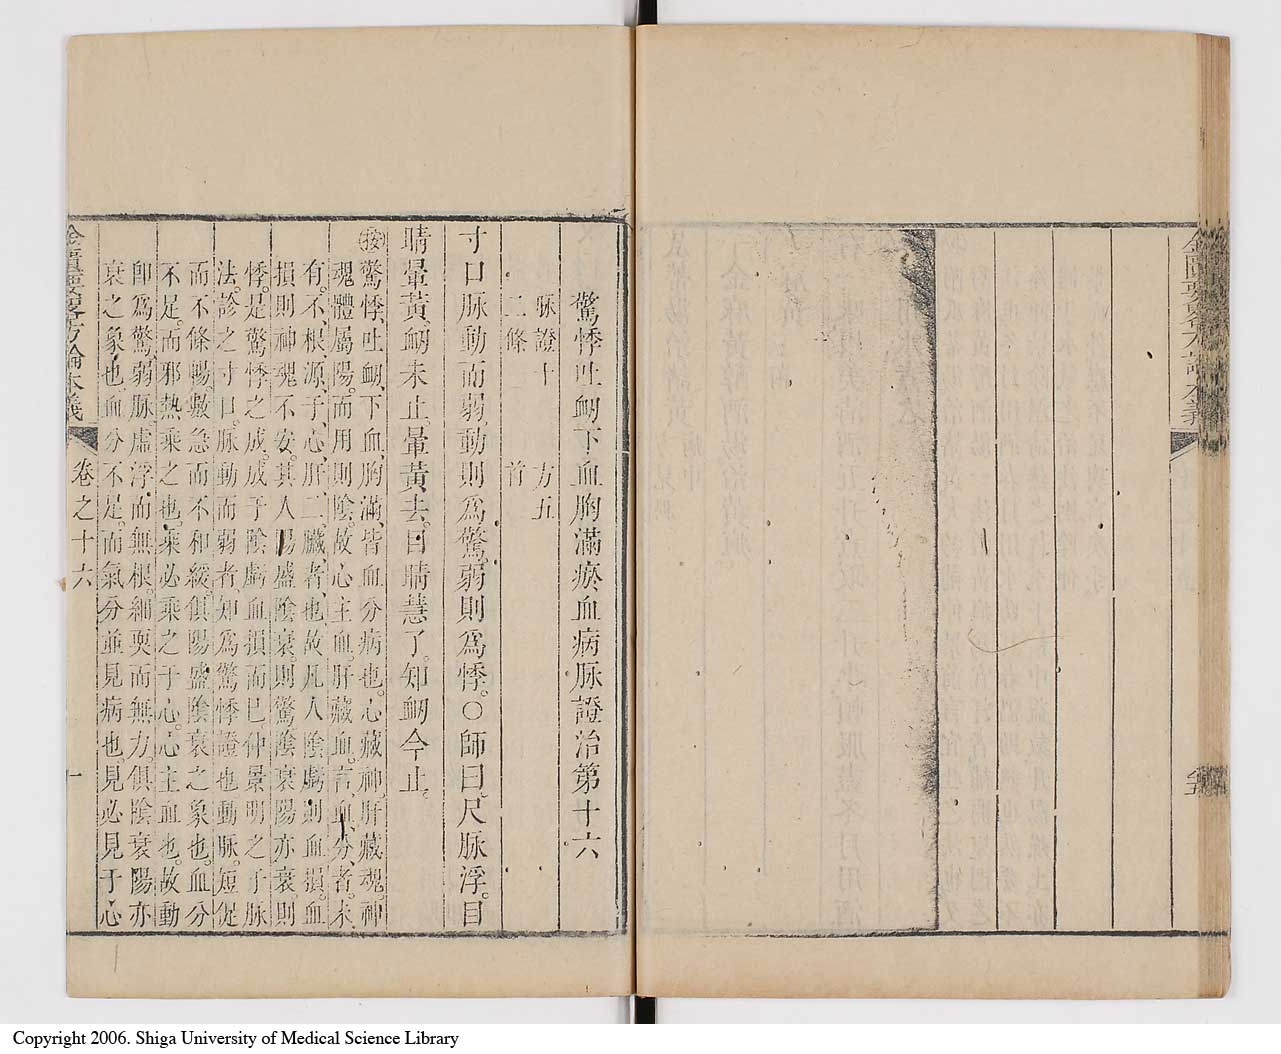 驚悸吐衂下血胸滿瘀血病脉證治第十六
脉證十二條
方五首
寸口脉動而弱動則爲驚弱則爲悸。○師曰尺脉浮。目
睛暈黃衂未止暈黃去。目睛慧了。知衂今止。
按驚悸、吐衂、下血、胸滿、皆血分病也。心藏神、肝藏魂。神
魂體屬陽。而用則陰。故心主血。肝藏血。言血分者。未
有不根源于心肝二臟者也。故凡人陰虧則血損。血
損則神魂不安。其人陽盛陰衰。則驚陰衰陽亦衰。則
悸。是驚悸之成。成于陰虧血損而已仲景明之于脉
法。診之寸口。脉動而弱者。知爲驚悸證也動脉。短促
而不條暢。數急而不和緩。俱陽盛陰衰之象也。血分
不足。而邪熱乘之也。乘必乘之于心。心主血也。故動
卽爲驚。弱脉虛浮而無根。細耎而無力。俱陰衰陽亦
衰之象也。血分不足。而氣分並見病也。見必見于心
金匱要畧方論本義
卷之十六
一
Copyright 2006. Shiga University of Medical Science Library